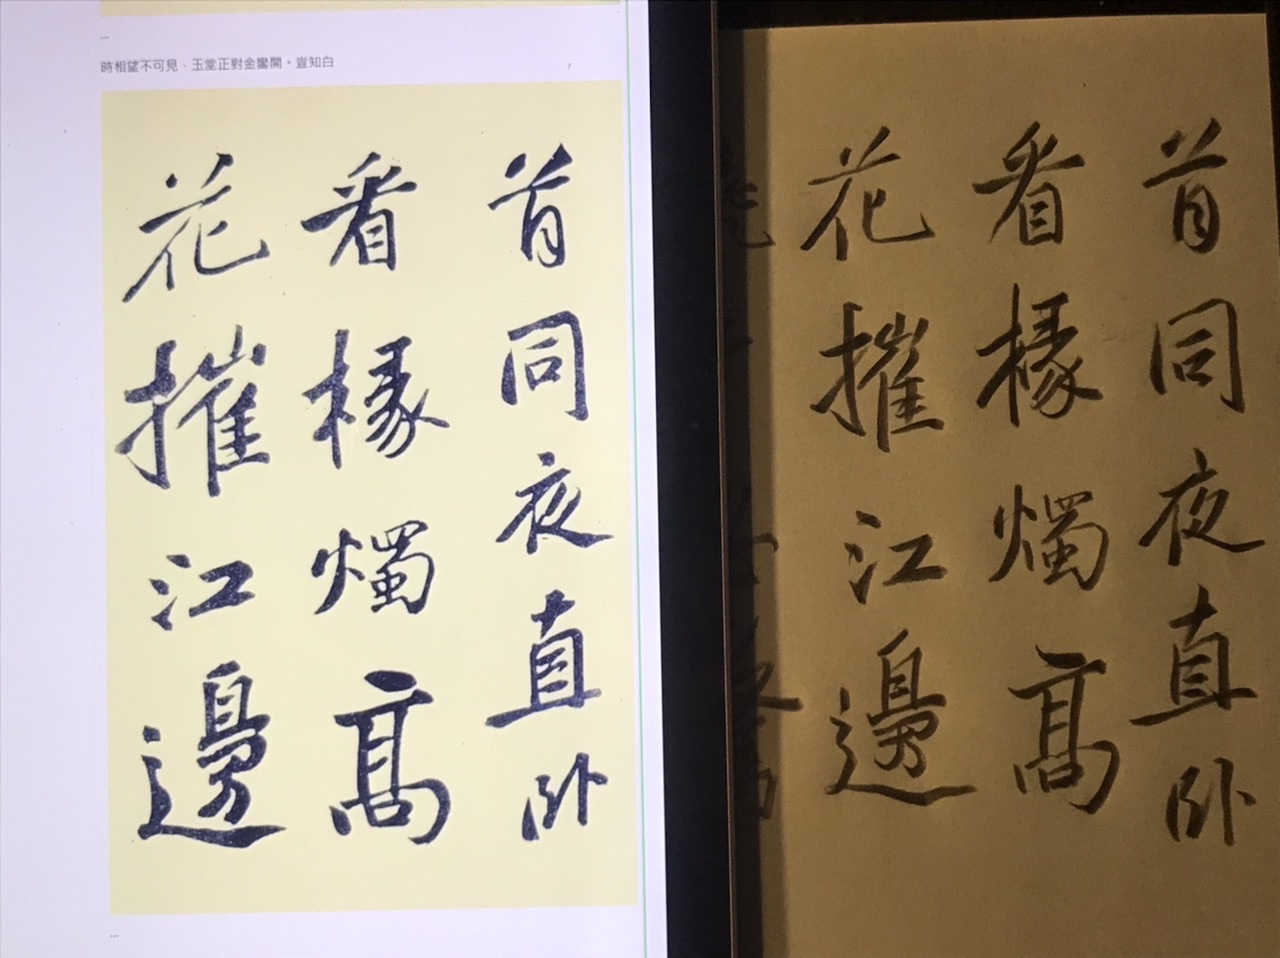 ...
時相望不可見，玉堂正對金鑾開。豈知白
首同夜直卧
看椽燭高
花摧江邊
...
首同夜直卧
看椽燭高
花摧江邊